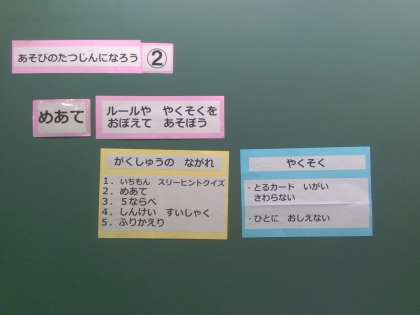 あそびのたつじんになろう ②
めあて
ルールや やくそくを
おぼえて あそぼう
がくしゅうの ながれ
1．いちもん スリーヒントクイズ
2．めあて
3．５ならべ
4．しんけい すいじゃく
5．ふりかえり
やくそく
・とるカード いがい
さわらない
・ひとに おしえない